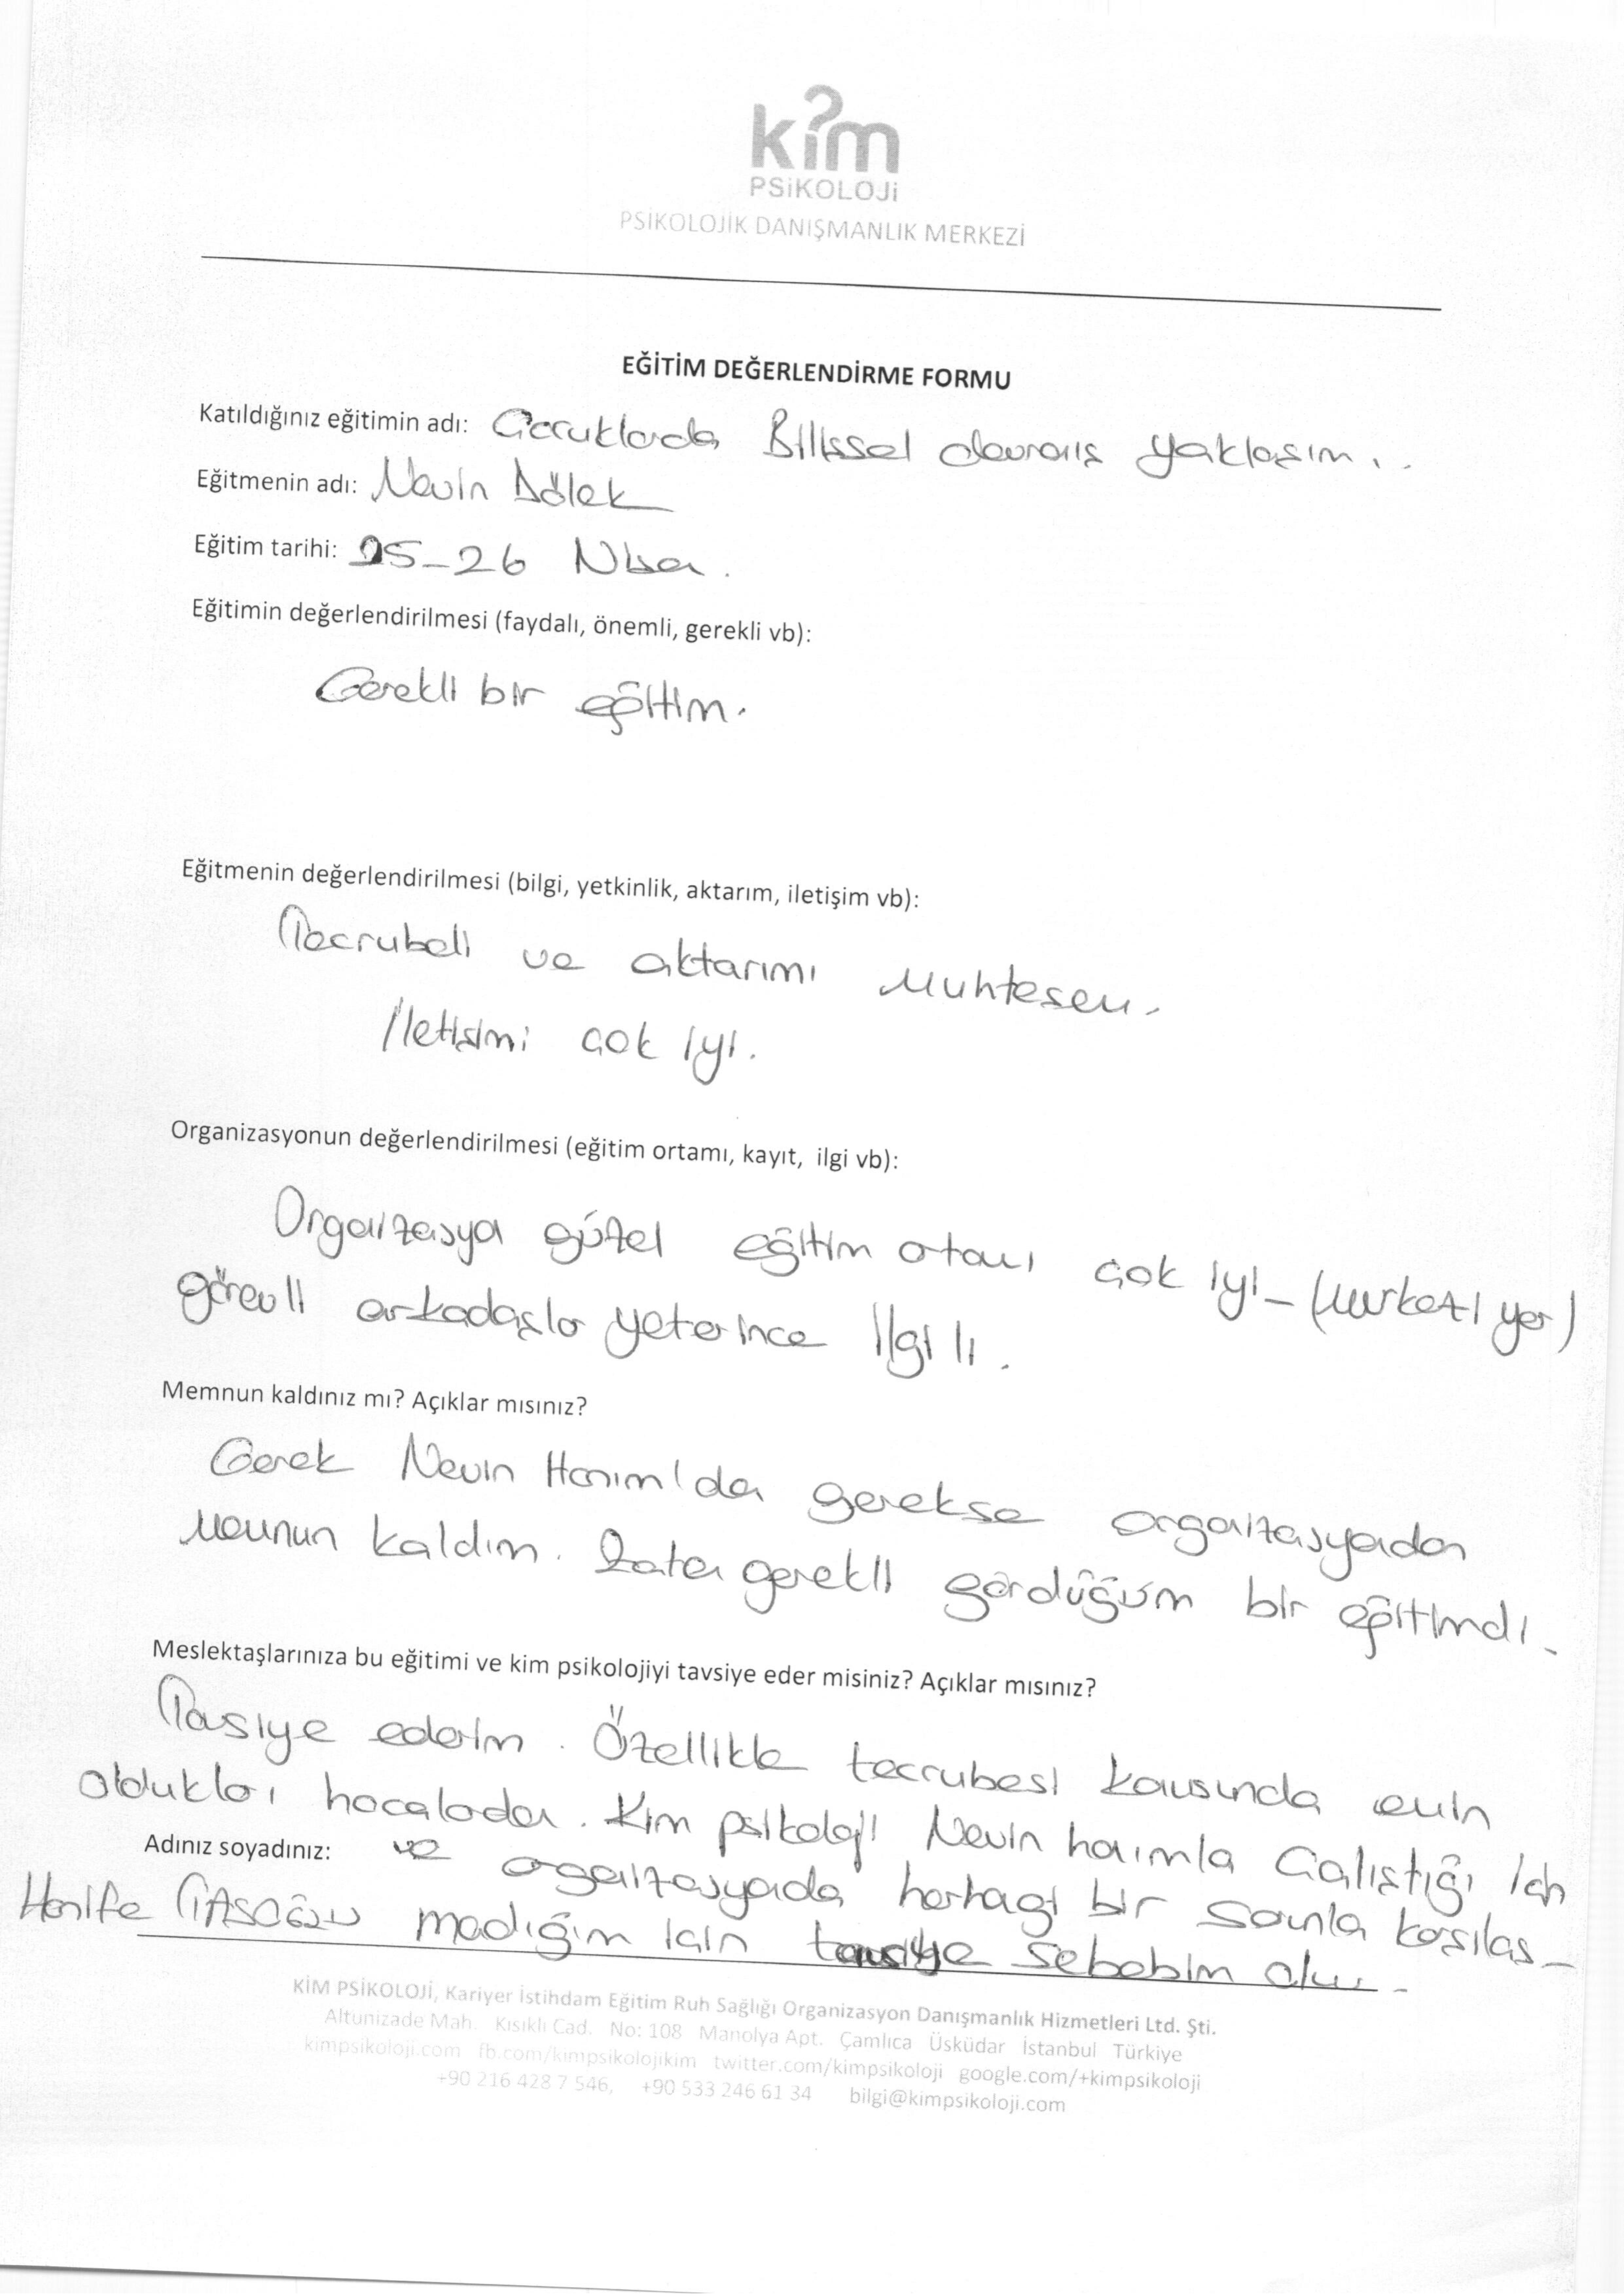 kim
PSiKOLOJi
PSİKOLOJİK DANIŞMANLIK MERKEZİ
EĞİTİM DEĞERLENDİRME FORMU
Katıldığınız eğitimin adı: Çocuklarda Bilişsel davranış yaklaşım..
Eğitmenin adı: Nevin Dölek
Eğitim tarihi: 25-26 Nisan.
Eğitimin değerlendirilmesi (faydalı, önemli, gerekli vb):
Gerekli bir eğitim.
Eğitmenin değerlendirilmesi (bilgi, yetkinlik, aktarım, iletişim vb):
Tecrübeli ve aktarımı Muhteşem.
İletişimi çok iyi.
Organizasyonun değerlendirilmesi (eğitim ortamı, kayıt, ilgi vb):
Organizasyon güzel eğitim ortamı çok iyi- (merkezi yer)
görevli arkadaşlar yeterince ilgili.
Memnun kaldınız mı? Açıklar mısınız?
Gerek Nevin Hanım'dan gerekse organizasyondan
memnun kaldım. Zaten gerekli gördüğüm bir eğitimdi.
Meslektaşlarınıza bu eğitimi ve kim psikolojiyi tavsiye eder misiniz? Açıklar mısınız?
Tavsiye ederim. Özellikle tecrubesi konusunda emin
oldukları hocalardan. Kim psikoloji Nevin hanımla çalıştığı için
Adınız soyadınız: ve organizasyonda herhangi bir sorunla karşılaş-
Hanife madığım için tavsiye sebebim olur.
KİM PSİKOLOJİ, Kariyer İstihdam Eğitim Ruh Sağlığı Organizasyon Danışmanlık Hizmetleri Ltd. Şti.
Altunizade Mah. Kısıklı Cad. No: 108 Manolya Apt. Çamlıca Üsküdar İstanbul Türkiye
kimpsikoloji.com fb.com/kimpsikolojikim twitter.com/kimpsikoloji google.com/+kimpsikoloji
+90 216 428 7 546, +90 533 246 61 34 bilgi@kimpsikoloji.com